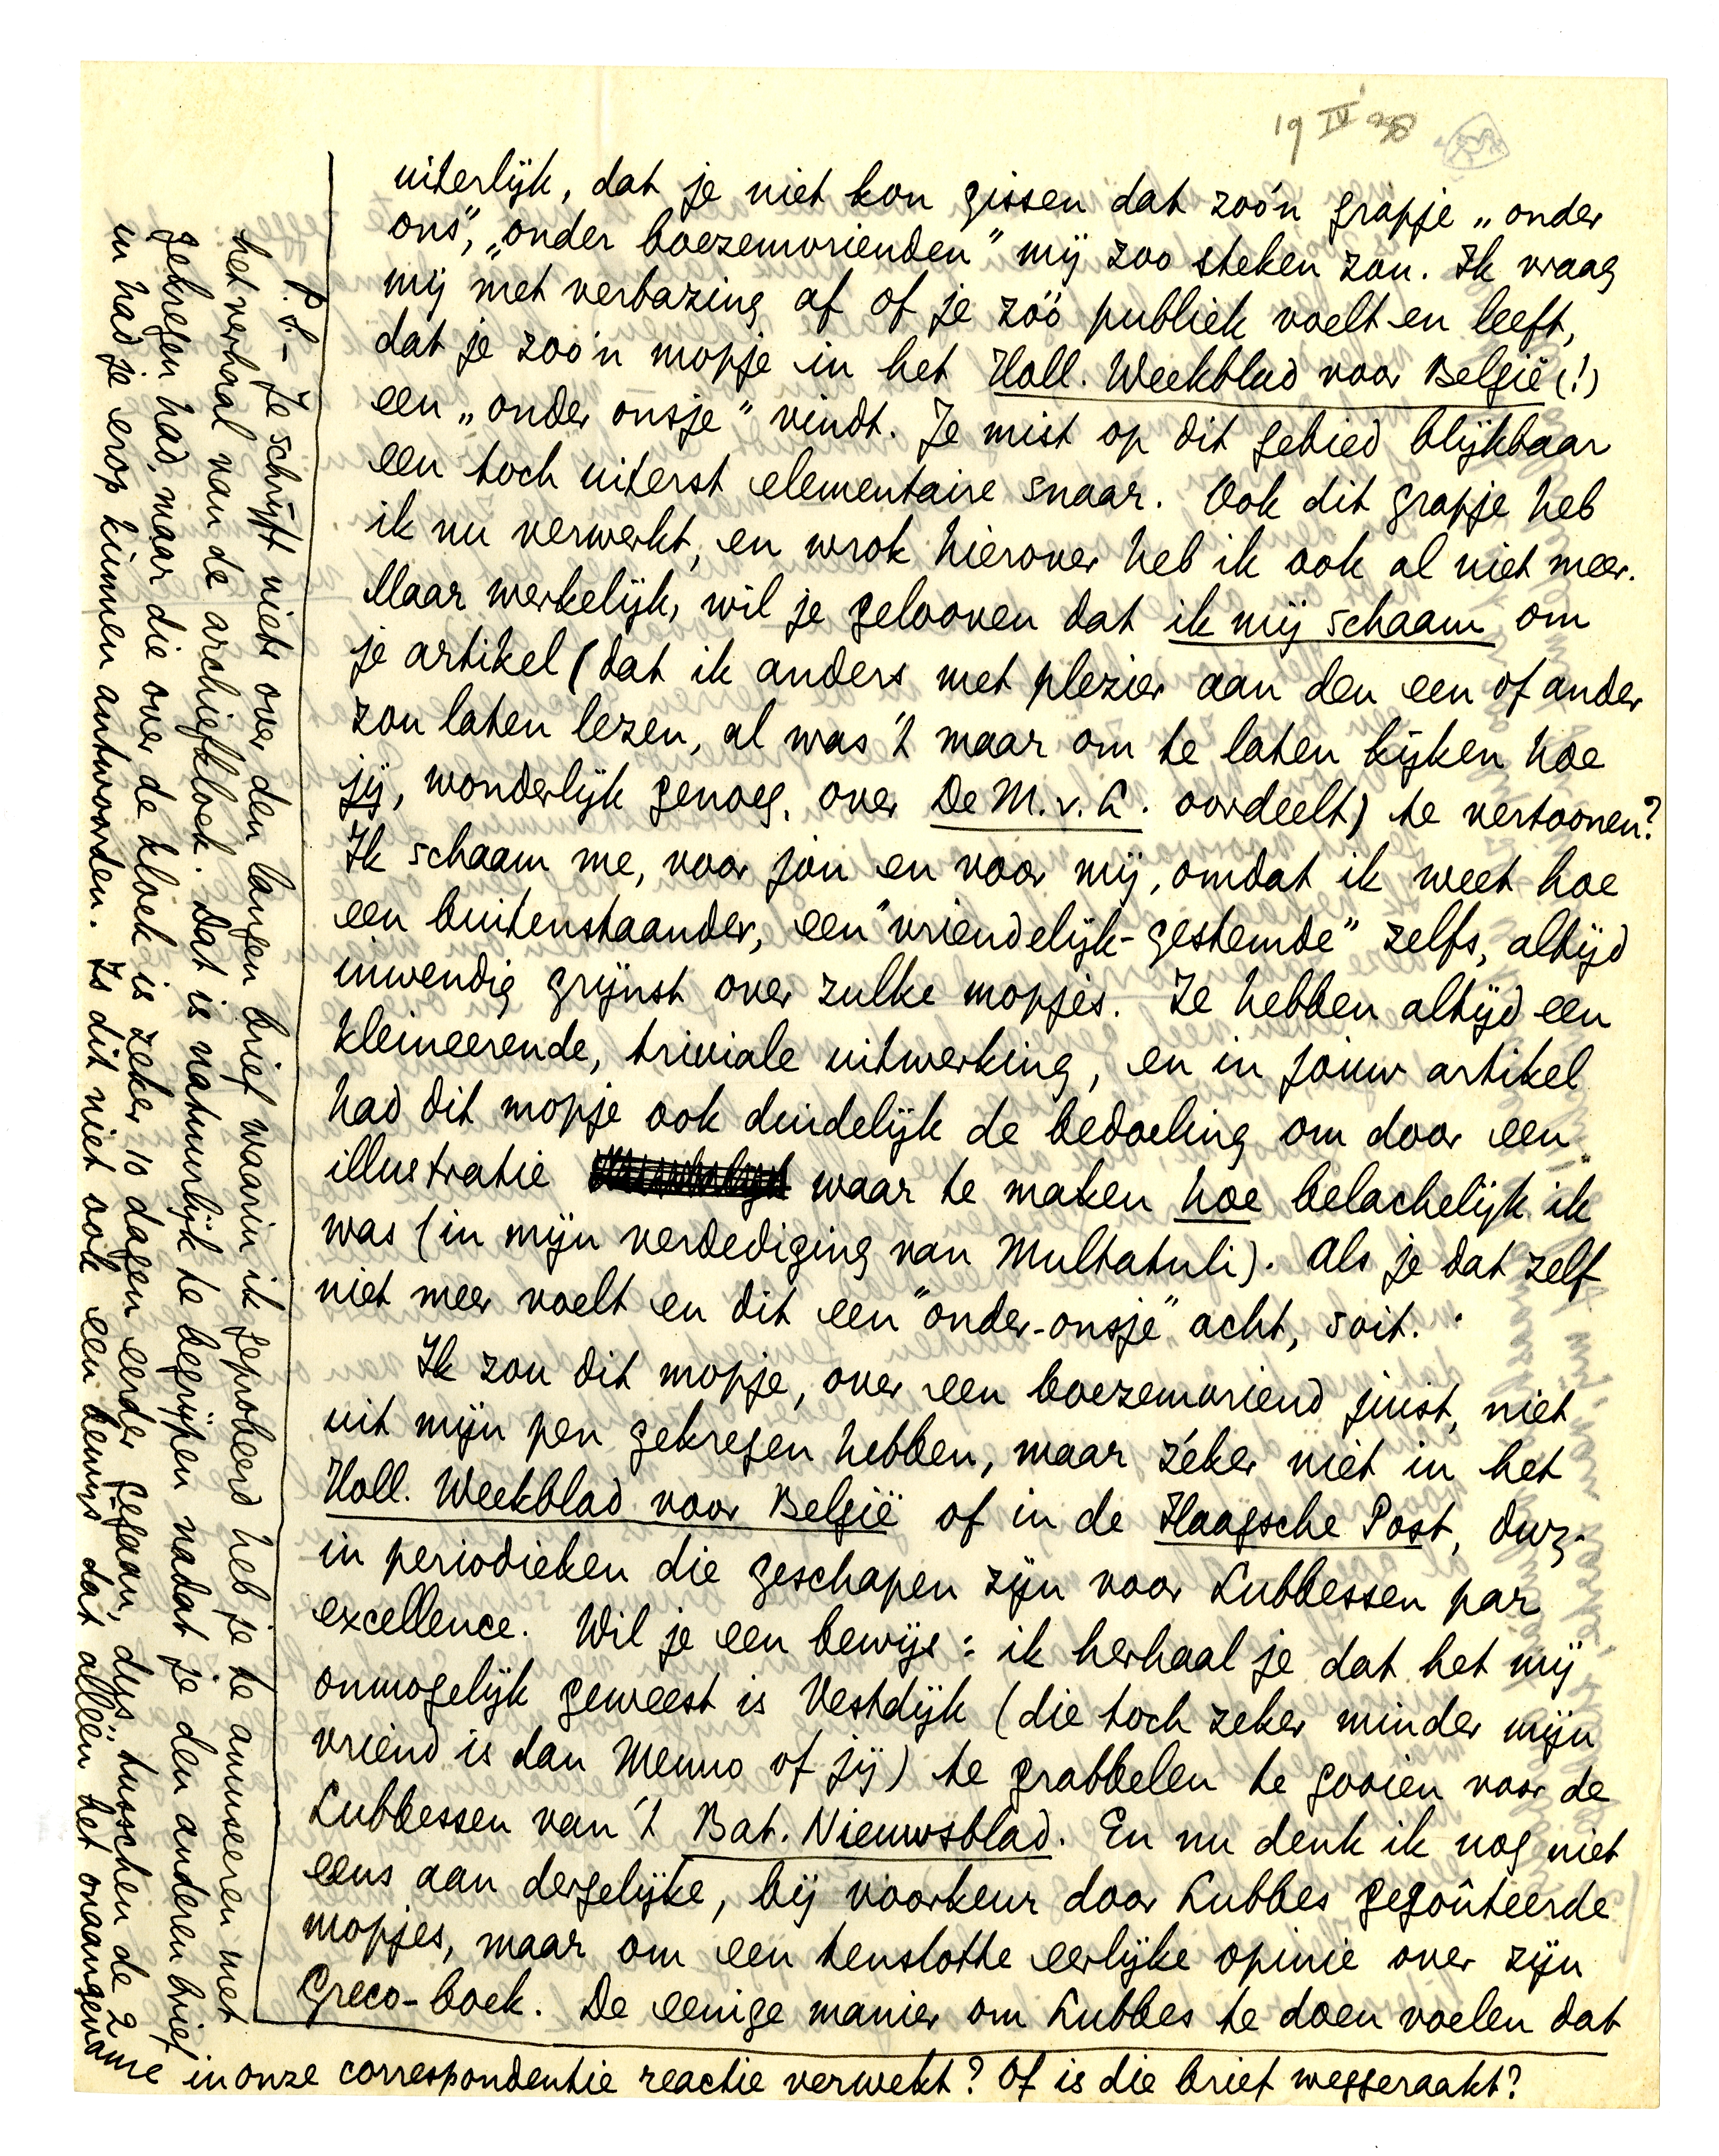 19 IV 38
uiterlijk, dat je niet kon gissen dat zoo'n grapje „onder
ons”, „onder boezemvrienden” mij zoo steken zou. Ik vraag
mij met verbazing af of je zóó publiek voelt en leeft,
dat je zoo'n mopje in het Holl. Weekblad voor België (!)
een „onder onsje” vindt. Je mist op dit gebied blijkbaar
een toch uiterst elementaire snaar. Ook dit grapje heb
ik nu verwerkt, en wrok hierover heb ik ook al niet meer.
Maar werkelijk, wil je gelooven dat ik mij schaam om
je artikel (dat ik anders met plezier aan den een of ander
zou laten lezen, al was 't maar om te laten kijken hoe
jij, wonderlijk genoeg, over De M. v. L. oordeelt) te vertoonen?
Ik schaam me, voor jou en voor mij, omdat ik weet hoe
een buitenstaander, een “vriendelijk-gestemde” zelfs, altijd
inwendig grijnst over zulke mopjes. Ze hebben altijd een
kleineerende, triviale uitwerking, en in jouw artikel
had dit mopje ook duidelijk de bedoeling om door een
illustratie waar te maken hoe belachelijk ik
was (in mijn verdediging van Multatuli). Als je dat zelf
niet meer voelt en dit een “onder-onsje” acht, soit.
Ik zou dit mopje, over een boezemvriend juist, niet
uit mijn pen gekregen hebben, maar zéker niet in het
Holl. Weekblad voor België of in de Haagsche Post, dwz.
in periodieken die geschapen zijn voor Lubbessen par
excellence. Wil je een bewijs: ik herhaal je dat het mij
onmogelijk geweest is Vestdijk (die toch zeker minder mijn
vriend is dan Menno of jij) te grabbelen te gooien voor de
Lubbessen van 't Bat. Nieuwsblad. En nu denk ik nog niet
eens aan dergelijke, bij voorkeur door Lubbes gegoûteerde
mopjes, maar om een tenslotte eerlijke opinie over zijn
Greco-boek. De eenige manier om Lubbes te doen voelen dat
P.S. – Je schrijft niets over den langen brief waarin ik geprobeerd heb je te amuseeren met
het verhaal van de archiefkloek. Dat is natuurlijk te begrijpen nadat je den anderen brief
gekregen had, maar die over de kloek is zeker 10 dagen eerder gegaan, dus tusschen de 2
in had je erop kunnen antwoorden. Is dit niet ook een bewijs dat alléén het onaangename
in onze correspondentie reactie verwekt? Of is die brief weggeraakt?